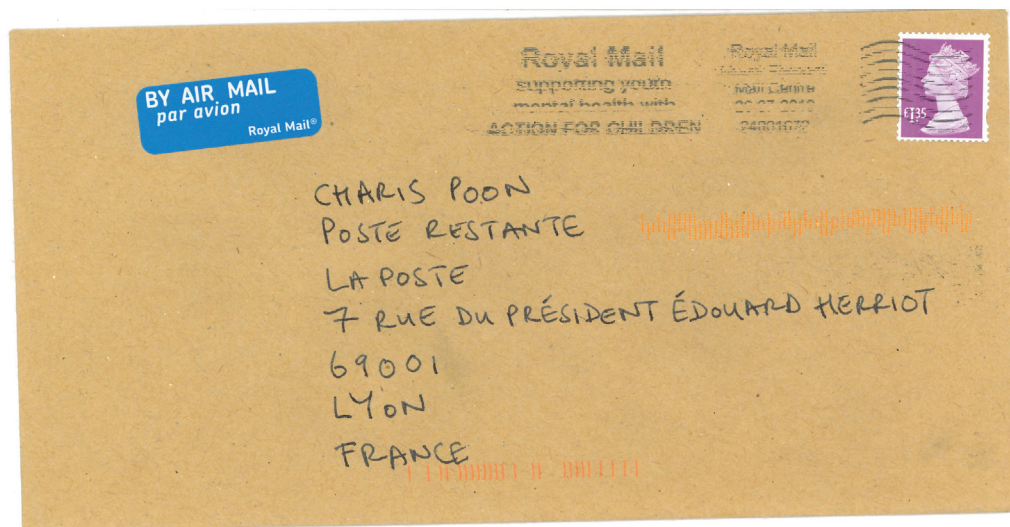 BY AIR MAIL
par avion
Royal Mail®
Royal Mail
supporting youth
mental health with
ACTION FOR CHILDREN
Royal Mail
Mail Centre
24001672
£1.35
CHARIS POON
POSTE RESTANTE
LA POSTE
7 RUE DU PRÉSIDENT ÉDOUARD HERRIOT
69001
LYON
FRANCE